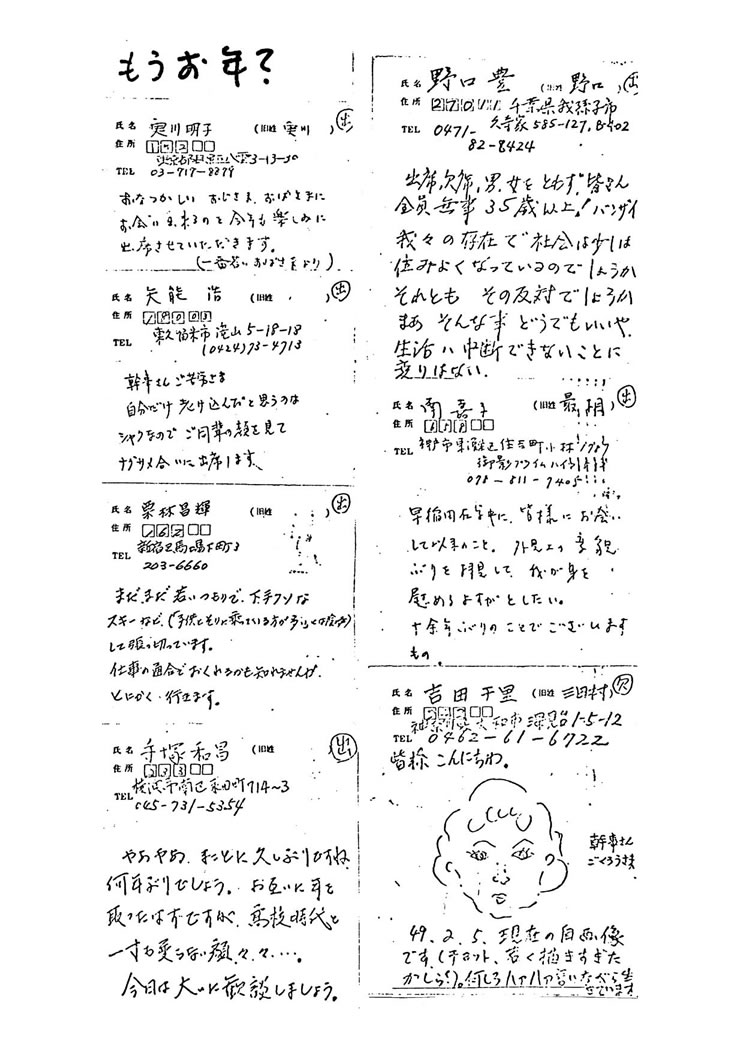 もうお年?
氏名 実川明子 (旧姓 実川) 出
住所
3-13-10
TEL 03-717-8879
おなつかしい おじさま、おばさまに
お会い出来るのを今から楽しみに
出席させていただきます。
(一番若いおばさまより)
氏名 矢能 浩 (旧姓 ) 出
住所
東久留米市滝山5-18-18
TEL (0424)73-4713
幹事さんご苦労さま
自分だけ老け込んだと思うのは
シャクなので ご同輩の顔を見て
ナグサメ合いに出席します。
氏名 栗林昌輝 (旧姓 ) 出
住所 162
新宿区馬場下町3
TEL 203-6660
まだまだ若いつもりで、下手クソな
スキーなど、(子供とそりに乗っている方が多い
して張り切っています。
仕事の都合でおくれるかも知れませんが、
とにかく行きます。
氏名 手塚和昌 (旧姓 出
住所 233
横浜市南区 714~3
TEL 045-731-5354
やあやあ、まことに久しぶりですね
何年ぶりでしょう。お互いに年を
取ったはずですが、高校時代と
一寸も変らない顔々々・・・。
今日は大いに歓談しましょう。
氏名 野口 豊 (旧姓 野口) 出
住所 270 千葉県我孫子市
久寺家585-127, B-402
TEL 0471-82-8424
出席、欠席、男、女をとわず、皆さん
全員無事35歳以上!バンザイ
我々の存在で社会は少しは
住みよくなっているのでしょうか
それとも その反対でしょうか
まあ そんな事 どうでもいいや、
生活ハ中断できないことに
変りはない。
氏名 南 喜子 (旧姓 最胡) 出
住所
神戸市東灘区住吉町小林
TEL 御影プライムハイツ
078-811-7405
早稲田在学中に、皆様にお会い
して以来のこと。外見上の変貌
ぶりを拝見して、我が身を
慰めるよすがとしたい。
十余年ぶりのことでございます
もの。
氏名 吉田千里 (旧姓 三田村) 欠
住所
神奈川県大和市深見台1-5-12
TEL 0462-61-6722
皆様こんにちわ。
幹事さん
ごくろうさま
49.2.5.現在の自画像
です。(チョット、若く描きすぎた
かしら?)。何しろハァハァ言いながら生
きています